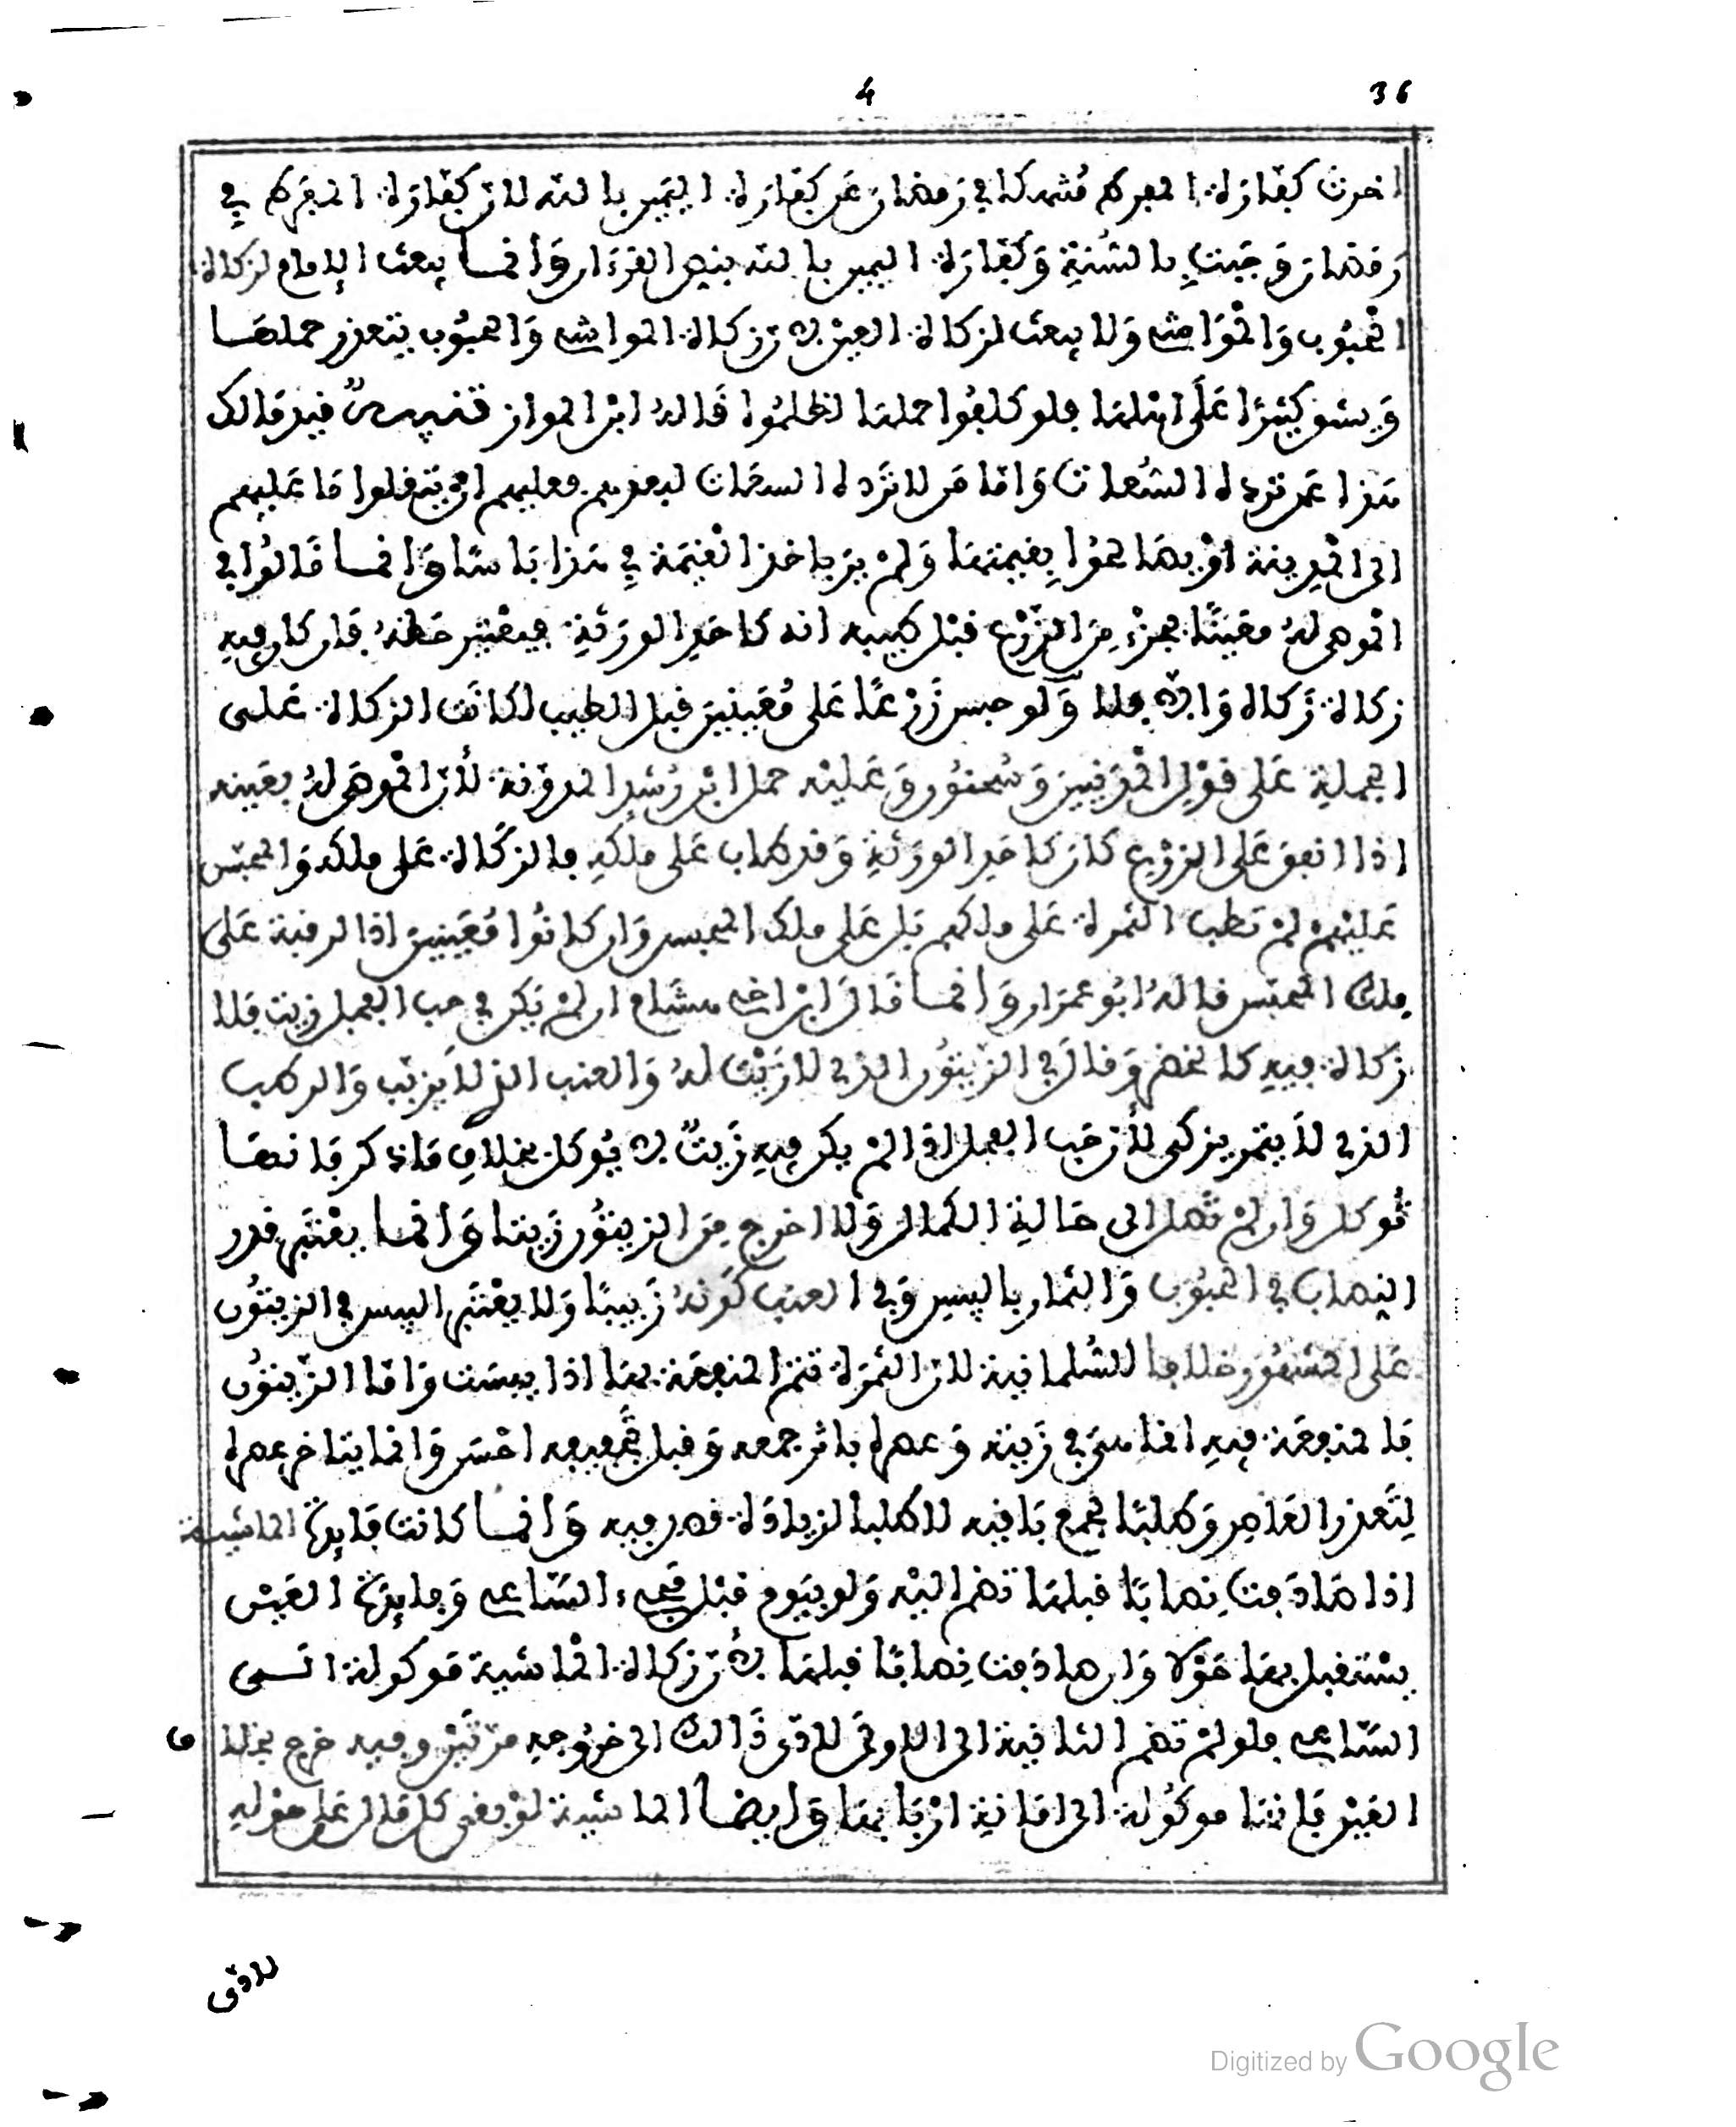 36
4
اخرت كفارة المفرط مشهدا في رمضان عن كفارة اليمين بالله لان كفارة المفرط في
رمضان وجبت بالسنة وكفارة اليمين بالله بنص القرءان وانما يبعث الإمام لزكاة
الحبوب والمواشي ولا يبعث لزكاة العين لان زكاة المواشي والحبوب يتعذر حملها
ويشق كثيرا على اهلها فلو كلفوا حملها لظلموا قاله ابن المواز تنبيه قيد مالك
هذا عمن ترده السعات واما من لا ترده السعات لبعدهم فعليهم ان ينقلوا ما عليهم
الى المدينة او يصالحوا بقيمتها ولم ير باخذ القيمة في هذا باسا وانما قالوا في
الموصى له معينا بجزء من الزرع قبل طيبه انه كاحد الورثة فيعتبر حظه فان كان فيه
زكاة زكاه والا فلا ولو حبس زرعا على معينين قبل الطيب لكانت الزكاة على
الجملة على قول المدنيين وسحنون وعليه حمل ابن رشد المدونة لأن الموصى له بعينه
اذا انفق على الزرع كان كاحد الورثة وقد طاب على ملكه فالزكاة على ملكه والمحبس
عليهم لم تطب الثمرة على ملكهم بل على ملك المحبس وان كانوا معينين اذ الرقبة على
ملك المحبس قاله ابو عمران وانما قال ابن اخي هشام ان لم يكن في حب الفجل زيت فلا
زكاة فيه كالخضر وقال في الزيتون الذي لا زيت له والعنب الذي لا يزبب والرطب
الذي لا يتمر يزكى لأن حب الفجل اذا لم يكن فيه زيت لا يوكل بخلاف ما ذكر فانها
توكل وان لم تصل الى حالة الكمال ولا اخرج من الزيتون زيتا وانما يعتبر قدر
النصاب في الحبوب والثمار باليبس وفي العنب كونه زبيبا ولا يعتبر اليبس في الزيتون
على المشهور خلافا للسليمانية لان الثمرة تتم المنفعة بها اذا يبست واما الزيتون
فالمنفعة فيه انما هي في زيته وعصره باثر جمعه وقبل تجفيفه احسن وانما يتاخر عصره
لتعذر العاصر وطلبا لجمع باقيه لا طلبا لزيادة قصد فيه وانما كانت فايدة الماشية
اذا صادفت نصابا قبلها تضم اليه ولو بيوم قبل مجيء الساعي وفايدة العين
يستقبل بها حولا وان صادفت نصابا قبلها لان زكاة الماشية موكولة الى
الساعي فلو لم تضم الثانية الى الاولى لادى ذالك الى خروجه مرتين وفيه حرج بخلاف
العين فانها موكولة الى امانة اربابها وايضا الماشية لو بقى كل مال على حوله
لادى
Digitized by Google